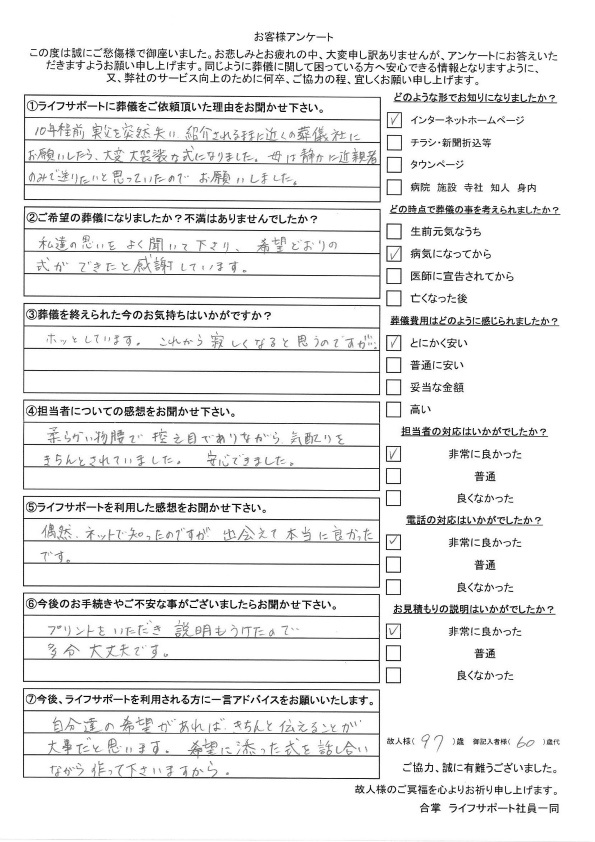 お客様アンケート
この度は誠にご愁傷様で御座いました。お悲しみとお疲れの中、大変申し訳ありませんが、アンケートにお答えいた
だきますようお願い申し上げます。同じように葬儀に関して困っている方へ安心できる情報となりますように、
又、弊社のサービス向上のために何卒、ご協力の程、宜しくお願い申し上げます。
①ライフサポートに葬儀をご依頼頂いた理由をお聞かせ下さい。
10年程前 実父を突然失い 紹介されるままに近くの葬儀社に
お願いしたら、大変大袈裟な式になりました。母は静かに近親者
のみで送りたいと思っていたので お願いしました。
②ご希望の葬儀になりましたか？不満はありませんでしたか？
私達の思いを よく聞いて下さり、 希望どおりの
式が できたと感謝しています。
③葬儀を終えられた今のお気持ちはいかがですか？
ホッとしています。 これから寂しくなると思うのですが…
④担当者についての感想をお聞かせ下さい。
柔らかい物腰で 控え目でありながら、気配りを
きちんとされていました。 安心できました。
⑤ライフサポートを利用した感想をお聞かせ下さい。
偶然、ネットで知ったのですが 出会えて本当に良かった
です。
⑥今後のお手続きやご不安な事がございましたらお聞かせ下さい。
プリントをいただき 説明もうけたので
多分 大丈夫です。
⑦今後、ライフサポートを利用される方に一言アドバイスをお願いいたします。
自分達の希望があれば、きちんと伝えることが
大事だと思います。 希望に添った式を話し合い
ながら 作って下さいますから。
どのような形でお知りになりましたか？
✓ インターネットホームページ
チラシ・新聞折込等
タウンページ
病院 施設 寺社 知人 身内
どの時点で葬儀の事を考えられましたか？
生前元気なうち
✓ 病気になってから
医師に宣告されてから
亡くなった後
葬儀費用はどのように感じられましたか？
✓ とにかく安い
普通に安い
妥当な金額
高い
担当者の対応はいかがでしたか？
✓ 非常に良かった
普通
良くなかった
電話の対応はいかがでしたか？
✓ 非常に良かった
普通
良くなかった
お見積もりの説明はいかがでしたか？
✓ 非常に良かった
普通
良くなかった
故人様（ 97 ）歳 御記入者様（ 60 ）歳代
ご協力、誠に有難うございました。
故人様のご冥福を心よりお祈り申し上げます。
合掌 ライフサポート社員一同